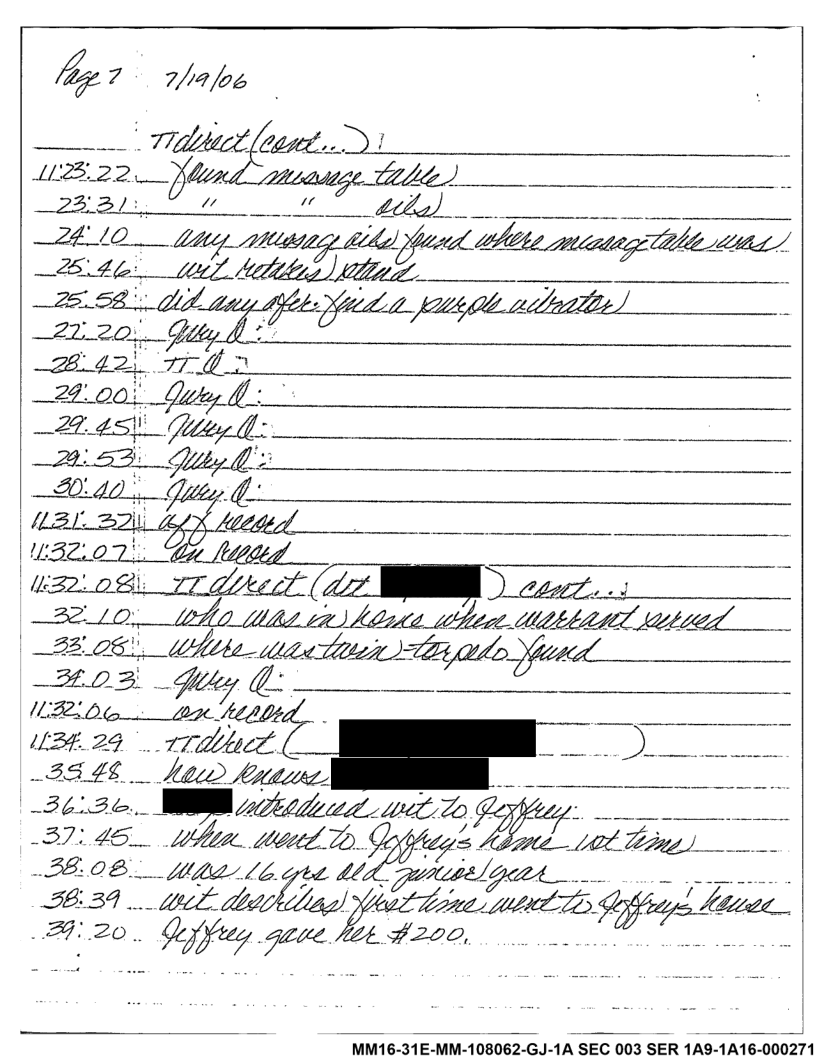 Page 7 7/19/06
π direct (cont...):
11:23:22 found message table
23:31 " " oils
24:10 any message oils found where message table was
25:46 wit retakes stand
25:58 did any ofcr. find a purple vibrator
27:20 Jury Q:
28:42 π Q:
29:00 Jury Q:
29:45 Jury Q:
29:53 Jury Q:
30:40 Jury Q:
11:31:32 off record
11:32:07 on record
11:32:08 π direct (det ) cont...
32:10 who was in home when warrant served
33:08 where was twin-torpedo found
34:03 Jury Q:
11:32:06 on record
11:34:29 π direct ( )
35:48 how knows
36:36 introduced wit to Jeffrey
37:45 when went to Jeffrey's home 1st time
38:08 was 16 yrs old junior year
38:39 wit describes first time went to Jeffrey's house
39:20 Jeffrey gave her $200.
MM16-31E-MM-108062-GJ-1A SEC 003 SER 1A9-1A16-000271